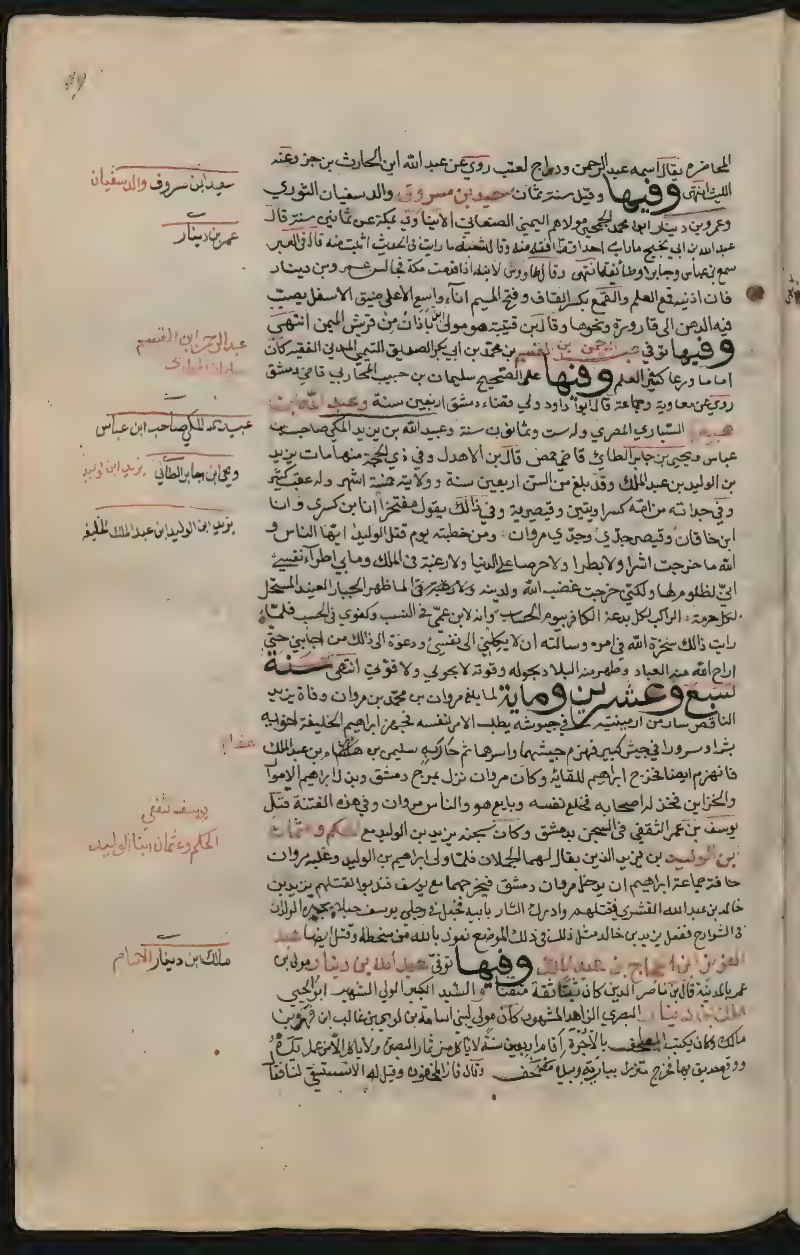 يقال اسمه عبد الرحمن ودراج لقب روي عن عبد الله ابن الحارث بن جزء وعنه
الليث انتهى وفيها وقيل سنة ثمان سعيد بن مسروق والد سفيان الثوري
وعمرو بن دينار ابو محمد الجمحي مولاهم اليمني الصنعاني بمكة عن ثمانين سنة قال
عبد الله بن ابي نجيح ما رايت احدا قط افقه منه وقال شعبة ما رايت في الحديث اثبت منه قال في العبر
سمع بن عباس وجابرا وطائفة انتهى وقال طاووس لابنه اذا قدمت مكة فجالس عمرو بن دينار
فان اذنيه قمع العلم والقمع بكسر القاف وفتح الميم اناء واسع الاعلى ضيق الاسفل يصب
فيه الدهن الى قارورة ونحوها وقال بن قتيبة هو مولى بن باذان من فرس اليمن انتهى
وفيها توفي عبد الرحمن بن القسم بن محمد بن ابي بكر الصديق التيمي المدني الفقيه كان
اماما ورعا كثير العلم وفيها على الصحيح سليمان بن حبيب المحاربي قاضي دمشق
روي عن معاوية وجماعة قال ابو داود ولي قضاء دمشق اربعين سنة وعبد الله بن
هبيرة السباري المصري وله ست وثمانون سنة وعبيد الله بن يزيد المكي صاحب بن
عباس ويحيى بن جابر الطائي قاضي حمص قال بن الاهدل وفي ذي الحجة منها مات يزيد
بن الوليد بن عبد الملك وقد بلغ من السن اربعين سنة وولايته خمسة اشهر وله عقب كثير
وفي جداته من امه كسراويتين وقيصرية وفي ذالك يقول مفتخرا انا بن كسرى وانا
ابن خاقان وقيصر جدي وجدي مروان ومن خطبته يوم قتل الوليد ايها الناس و
الله ما خرجت اشرا ولا بطرا ولا حرصا على الدنيا ولا رغبة في الملك وما بي اطراء نفسي
اني لظلوم لها ولكني خرجت غضب الله ولدينه لما ظهر الجبار العنيد المستحل
لكل حرمة الراكب لكل بدعة الكافر بيوم الحساب وانه لابن عمي في النسب وكفوي في الحسب فلما
رايت ذالك استخرت الله في امره وسالته ان لا يكلني الى نفسي ودعوة الى ذالك من اجابني حتى
اراح الله منه العباد وطهر منه البلاد بحوله وقوته لا بحولي ولا قوتي انتهى سنة
سبع وعشرين وماية لما بلغ مروان بن محمد بن مروان وفاة يزيد
الناقص سار من ارمينية في جيوشه يطلب الامر لنفسه فجهز ابراهيم الخليفة اخويه
بشرا ومسرورا في جيش كبير فهزم جيشهما واسرهما ثم حاربه سليمن بن هشام بن عبد الملك
فانهزم ايضا فخرج ابراهيم للقائه وكان مروان نزل بمرج دمشق وبذل ابراهيم الاموال
والخزاين فخذله اصحابه فخلع نفسه وبايع هو والناس مروان وفي هذه الفتنة قتل
يوسف بن عمر الثقفي في السجن بدمشق وكان سجنه يزيد بن الوليد مع الحكم وعثمان
ابن الوليد بن يزيد الذين يقال لهما الحملان فلما ولي ابراهيم بن الوليد وغلبه مروان
خافة جماعة ابراهيم ان يدخل مروان دمشق فيخرجهما مع يوسف فندبوا لقتلهم يزيد بن
خالد بن عبد الله القشري فقتلهم وادرك الثار بابيه فجعل في رجلي يوسف حبلا يجره الولدان
في الشوارع ففعل يزيد بن خالد مثل ذالك في ذلك الموضع نعوذ بالله من سخطه وقتل ايضا عبد
العزيز ابن الحجاج بن عبد الملك وفيها توفي عبد الله بن دينار مولى بن
عمر بالمدينة قال بن ناصر الدين كان ثقة متقنا والسيد الكبير الولي الشهير ابو يحيى
مالك بن دينار البصري الزاهد المشهور كان مولى لبني اسامة بن لوي بن غالب ابن فهر وبن
مالك وكان يكتب المصاحف بالاجرة اقام اربعين سنة لا ياكل من ثمار البصرة ولا ياكل الا من عمل يده
ووقع حريق بها فخرج متزرا ببارية وبيده مصحف وقال فاز المخفون وقيل له الا تستسقي لنا فقال
سعيد ابن مسروف والد سفيان
عمر بن دينار
عبد الرحمن ابن القسم
عبيد الله المكي صاحب ابن عباس
ويحي ابن جابر الطائي يزيد ابن وليد
يزيد ابن الوليد ابن عبد الملك الخليفه
يوسف ثقفي
الحكم وعثمان ابنا الوليد
مالك ابن دينار الامام